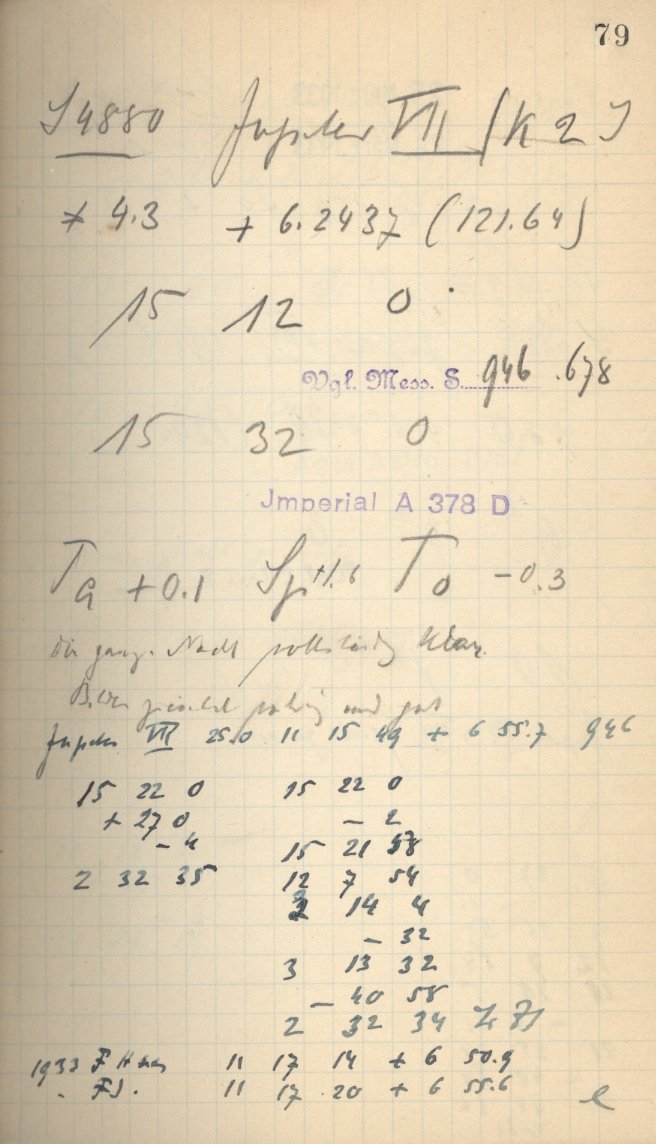 79
S 4880 Jupiter VII (K 2)
4.3 + 6.2437 (121.64)
15 12 0
Vgl. Mess. S. 946 .678
15 32 0
Jmperial A 378 D
Ta +0.1 Sp +1.6 To -0.3
Die ganze Nacht vollständig klar.
Bilder ziemlich ruhig und gut
Jupiter VII 25.0 11 15 49 + 6 55.7 946
15 22 0 15 22 0
+ 27 0 - 2
- 4 15 21 58
2 32 35 12 7 54
3 14 4
- 32
3 13 32
- 40 58
2 32 34
1933 11 17 14 + 6 50.9
11 17 20 + 6 55.6